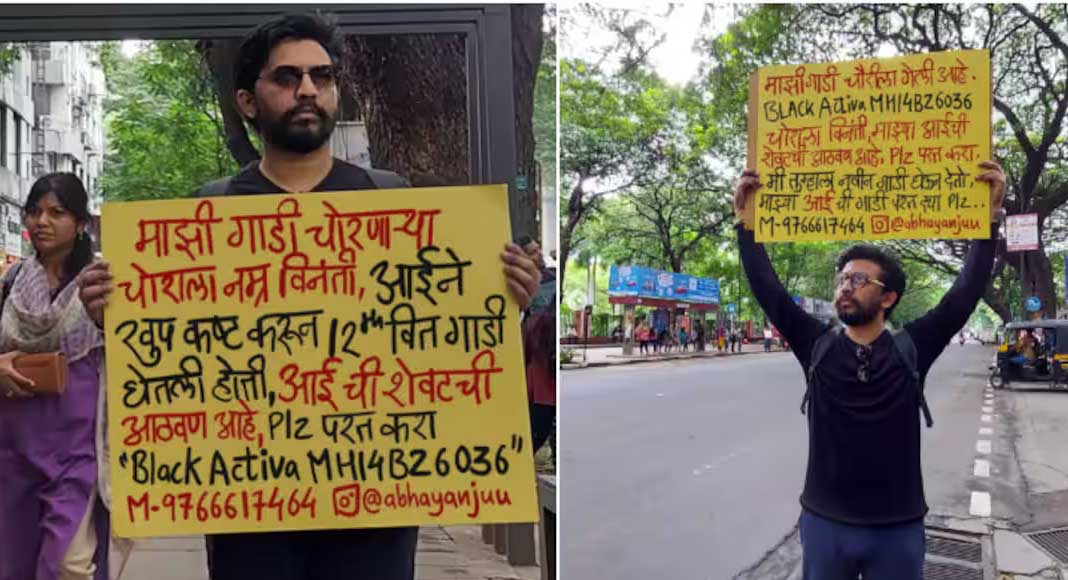 माझी गाडी चोरणाऱ्या
चोराला नम्र विनंती, आईने
खुप कष्ट करून 12th वित गाडी
घेतली होती, आई ची शेवटची
आठवण आहे, Plz परत करा
"Black Activa MH14BZ6036"
M-9766617464 @abhayanjuu
माझी गाडी चोरीला गेली आहे.
BLACK Activa MH14BZ6036
चोराला विनंती, माझ्या आईची
शेवटची आठवण आहे, Plz परत करा.
मी तुम्हाला नवीन गाडी घेऊन देतो,
माझ्या आई ची गाडी परत द्या Plz..
M-9766617464 @abhayanjuu